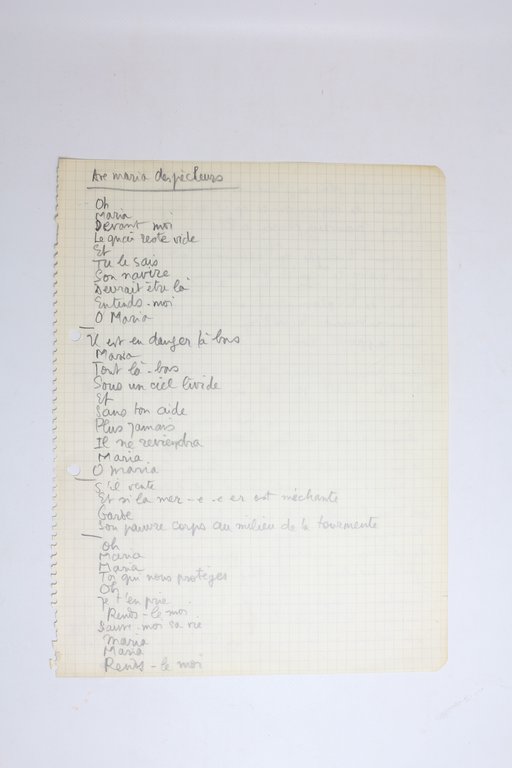 Ave maria des pêcheurs
Oh
Maria
Devant moi
Le quai reste vide
Et
Tu le sais
Son navire
Devrait être là
Entends-moi
O Maria
Il est en danger là bas
Maria
Tout là-bas
Sous un ciel livide
Et
Sans ton aide
Plus jamais
Il ne reviendra
Maria
O maria
S'il vente
Et si la mer-e-e er est méchante
Garde
Son pauvre corps au milieu de la tourmente
Oh
Maria
Maria
Toi qui nous protèges
Oh
Je t'en prie
Rends-le moi
Sauve-moi sa vie
Maria
Maria
Rends-le moi